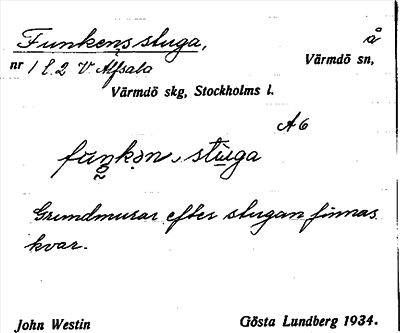 Funkens stuga, å
nr 1 l. 2 V. Alfsala Värmdö sn,
Värmdö skg, Stockholms l.
A6
fuŋkən, stuga
Grundmurar efter stugan finnas
kvar.
John Westin Gösta Lundberg 1934.